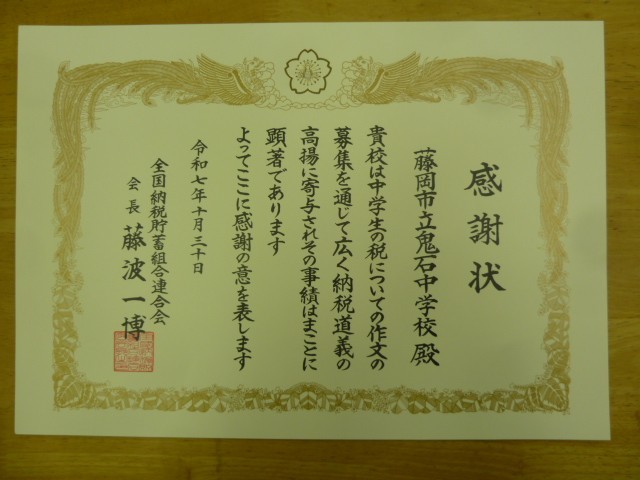 感謝状
藤岡市立鬼石中学校 殿
貴校は中学生の税についての作文の
募集を通じて広く納税道義の
高揚に寄与されその事績はまことに
顕著であります
よってここに感謝の意を表します
令和七年十月三十日
全国納税貯蓄組合連合会
会長 藤波一博